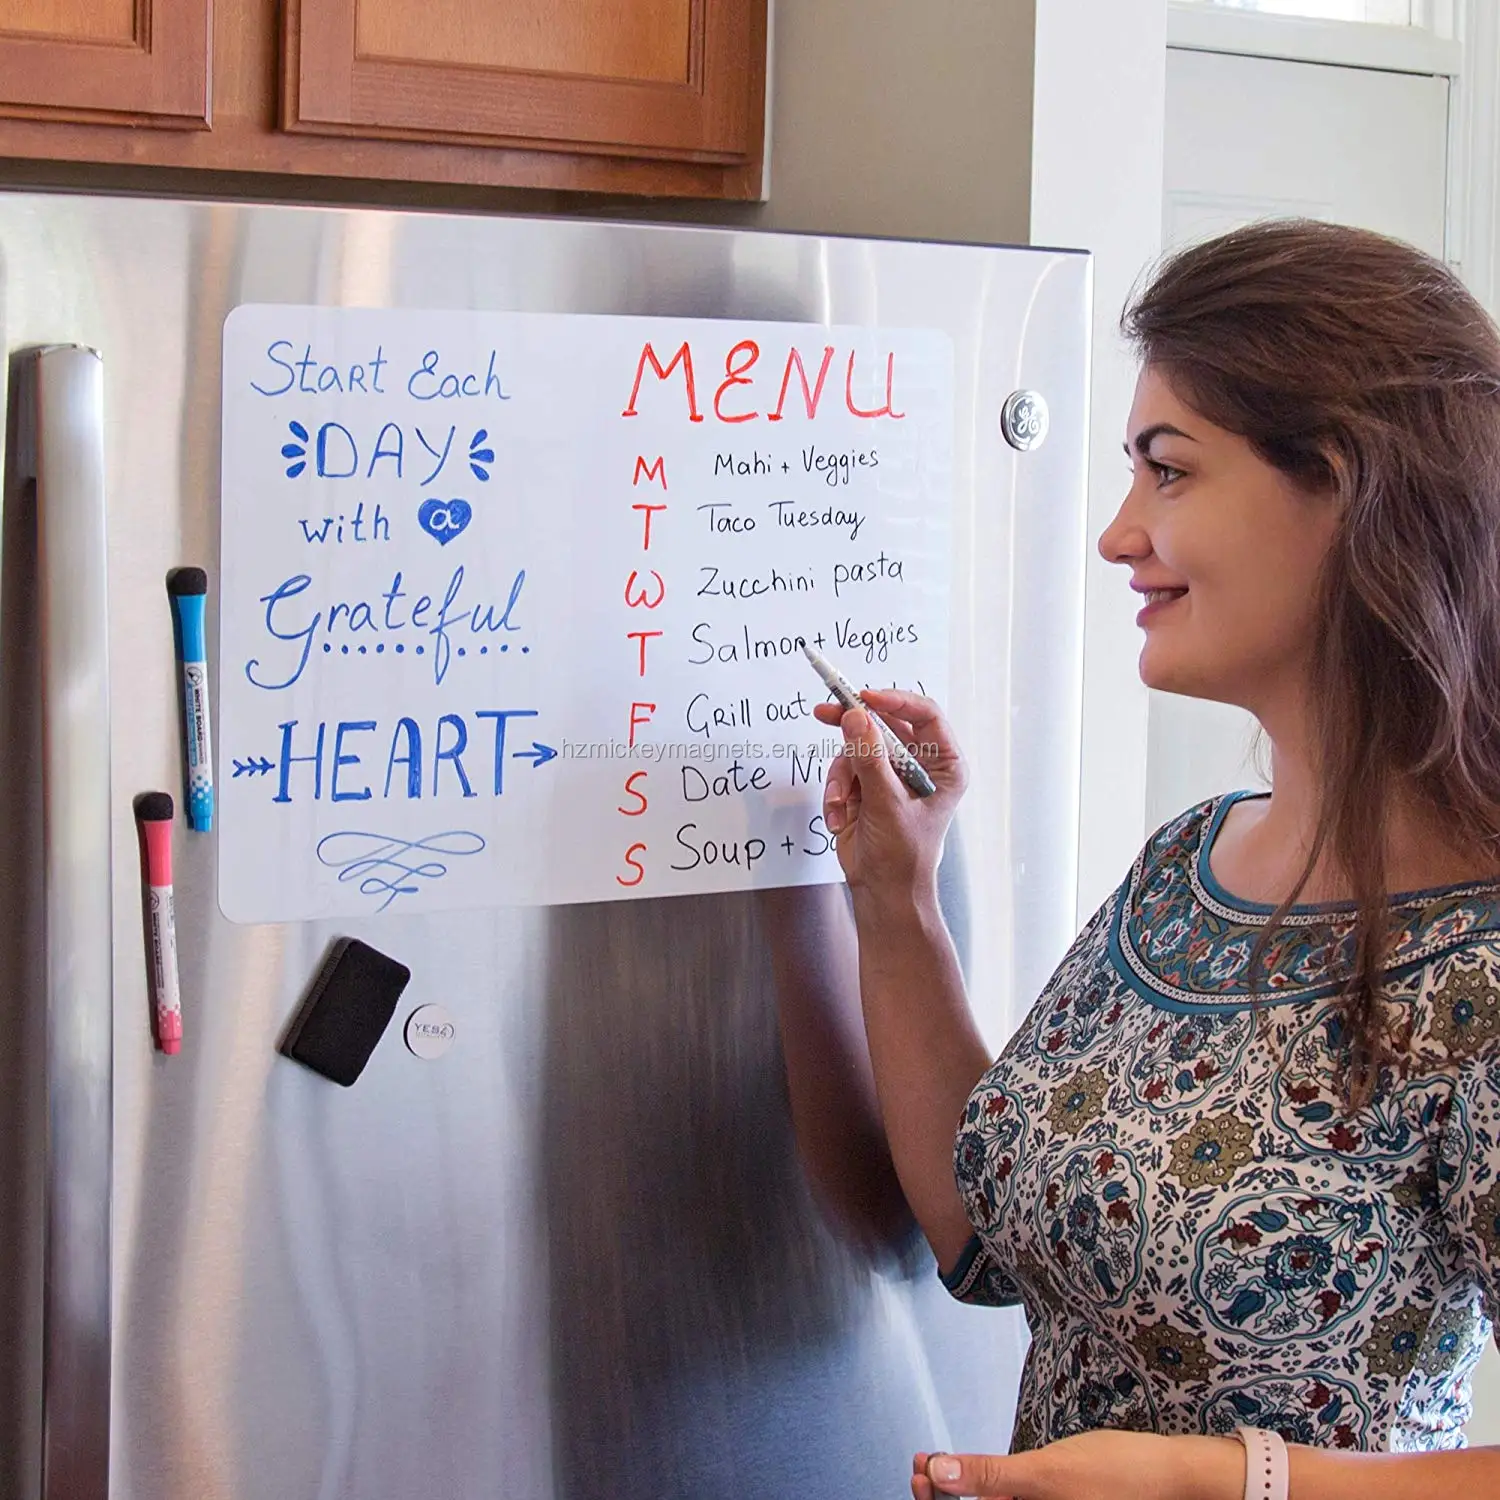 Start Each
DAY
with a
Grateful
HEART
MENU
M Mahi + Veggies
T Taco Tuesday
W Zucchini pasta
T Salmon + Veggies
F Grill out
S Date
S Soup +
hzmickeymagnets.en.alibaba.com
WHITE BOARD
YES4
GE